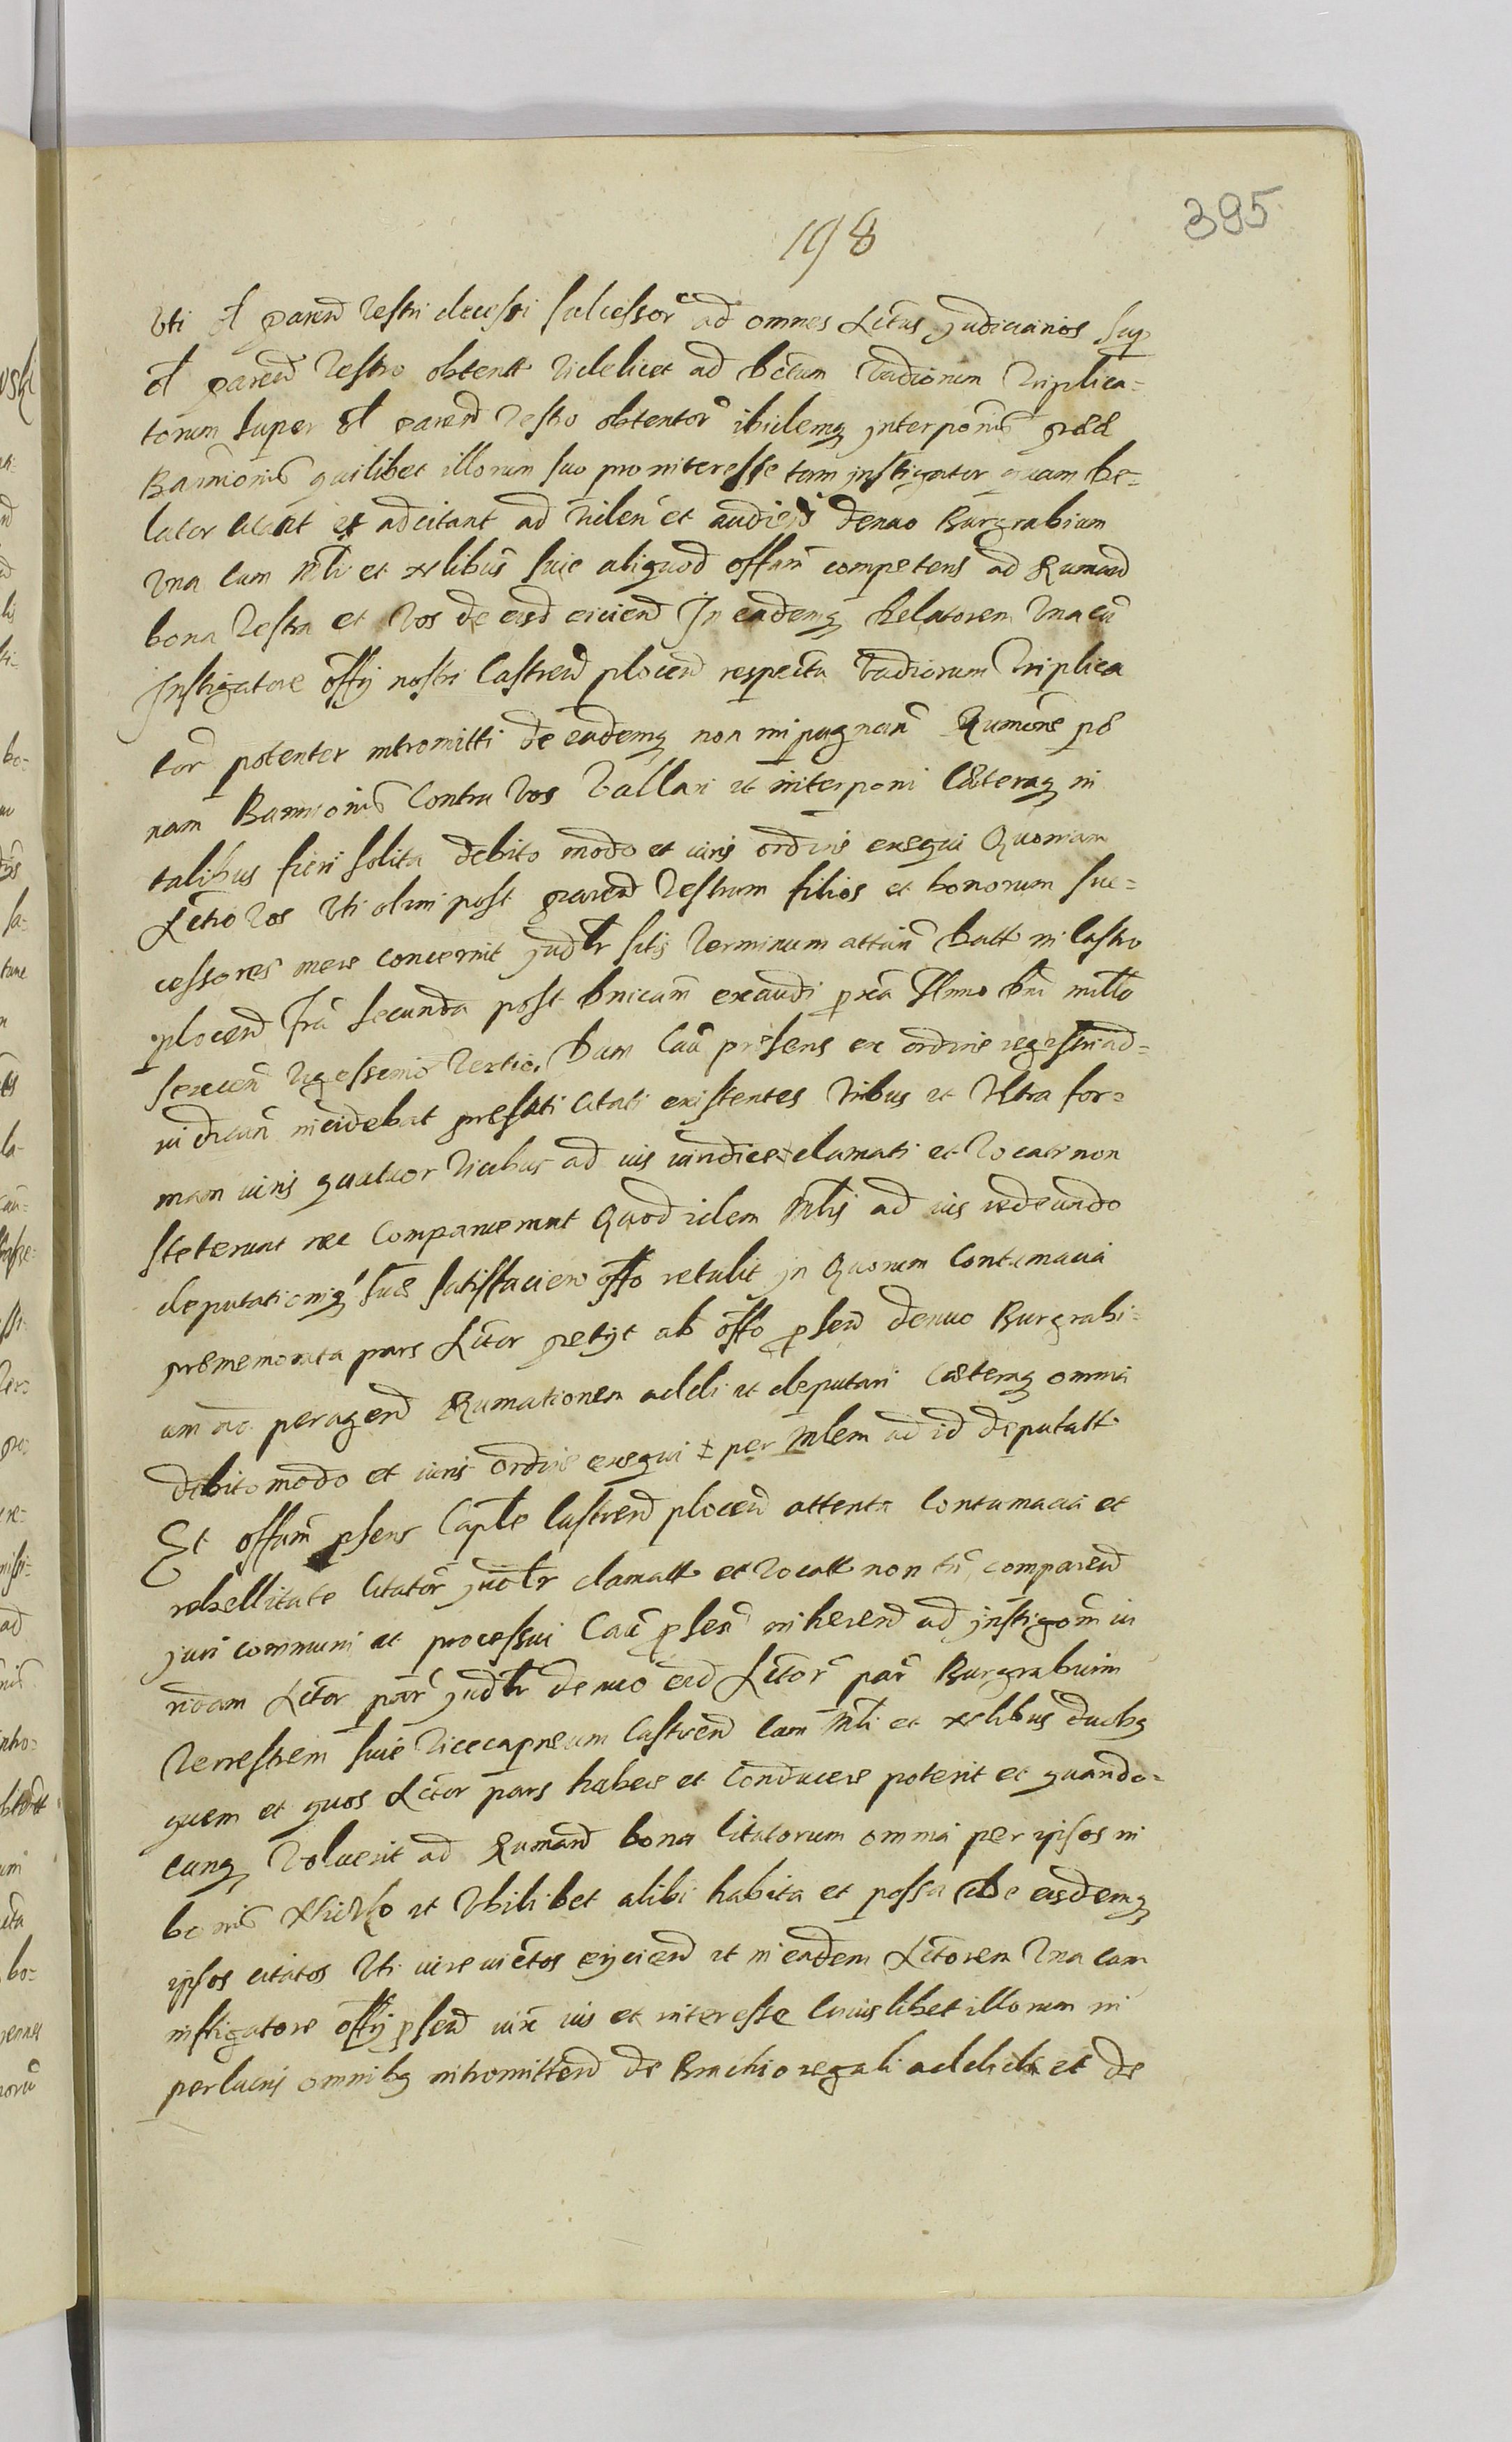 395
198
Vti ol paren Vestri decessi successor ad omnes Actus judiciarios sup
ol paren Vestro obtentt Videlicet ad bonum Vadiorum triplica-
torum super ol paren Vestro obtentor ibidemq interpoñis
Bannionis quilibet illorum suo pro interesse tam instigator quam De-
lator citant et adcitant ad viden et audien denuo Burgrabium
Vna cum Mli et nobilibus sive aliquod offum competens ad Rumand
bona Vestra et Vos de eisd eiciend In eademq Delatorem Vna cu
Instigatore offij nostri Castren plocen respectu Vadiorum triplica
tor potenter intromitti de eademq non impugnan Rumione pe
nam Bannionis Contra Vos Vallari et interponi Caeteraq in
talibus fieri solita debito modo et iuris ordine exequi Quoniam
Actio Vos Vti olim post paren Vestrum filios et bonorum suc-
cessores mere concernit judlr sitis Terminum attin Datt in Castro
plocen fra secunda post Dnicam exaudi pxa Anno Dni millo
sexcen Vigesimo Tertio. Dum Cau presens ex ordine regestri ad
iudican incidebat prefati Citati existentes tribus et Vltra for-
mam iuris quatuor Vicibus ad ius iudice clamati et Vocati non
steterunt nec Comparuerunt Quod idem Mlis ad ius redeundo
deputationiq suae satisfacien offo retulit in Quorum Contumacia
prememorata pars Actor petijt ab offo psen denuo Burgrabi-
um ac peragen Rumationem addi et deputari Caeteraq omnia
debito modo et iuris ordine exequi et per Mlem ad id deputatt
Et offum psens Caplle Castren plocen attenta Contumacia et
rebellitate Citator judlr clamatt et Vocatt non tn comparen
juri communi et processui Cau psen inheren ad instigom iu
ridam Actor par judlr denuo eid Actor par Burgrabium
Terrestrem sive Vicecapneum Castren cum Mli et nobilibus duobq
quem et quos Actor pars habere et Conducere poterit et quando-
cunq Voluerit ad Rumand bona Citatorum omnia per ipsos in
bonis et Vbilibet alibi habita et possa De eisdemq
ipsos citatos Vti iure victos eijciend et in eadem Actorem Vna cum
instigatore offij psen iux ius et interesse cuiuslibet illorum in
perlucris omnibq intromittend de Brachio regali addidit et de